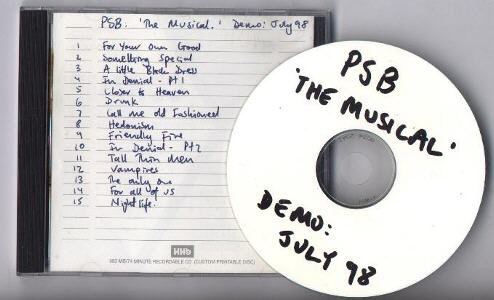 PSB. 'The Musical.' Demo: July 98
1 For Your Own Good
2 Something Special
3 A little Black Dress
4 In Denial - Pt 1
5 Closer to Heaven
6 Drunk
7 Call me old Fashioned
8 Hedonism
9 Friendly Fire
10 In Denial - Pt 2
11 Tall Thin men
12 Vampires
13 The only one
14 For all of us
15 Nightlife.
HHb
74 MINUTE RECORDABLE CD (CUSTOM PRINTABLE DISC)
PSB
'THE MUSICAL'
DEMO:
JULY 98